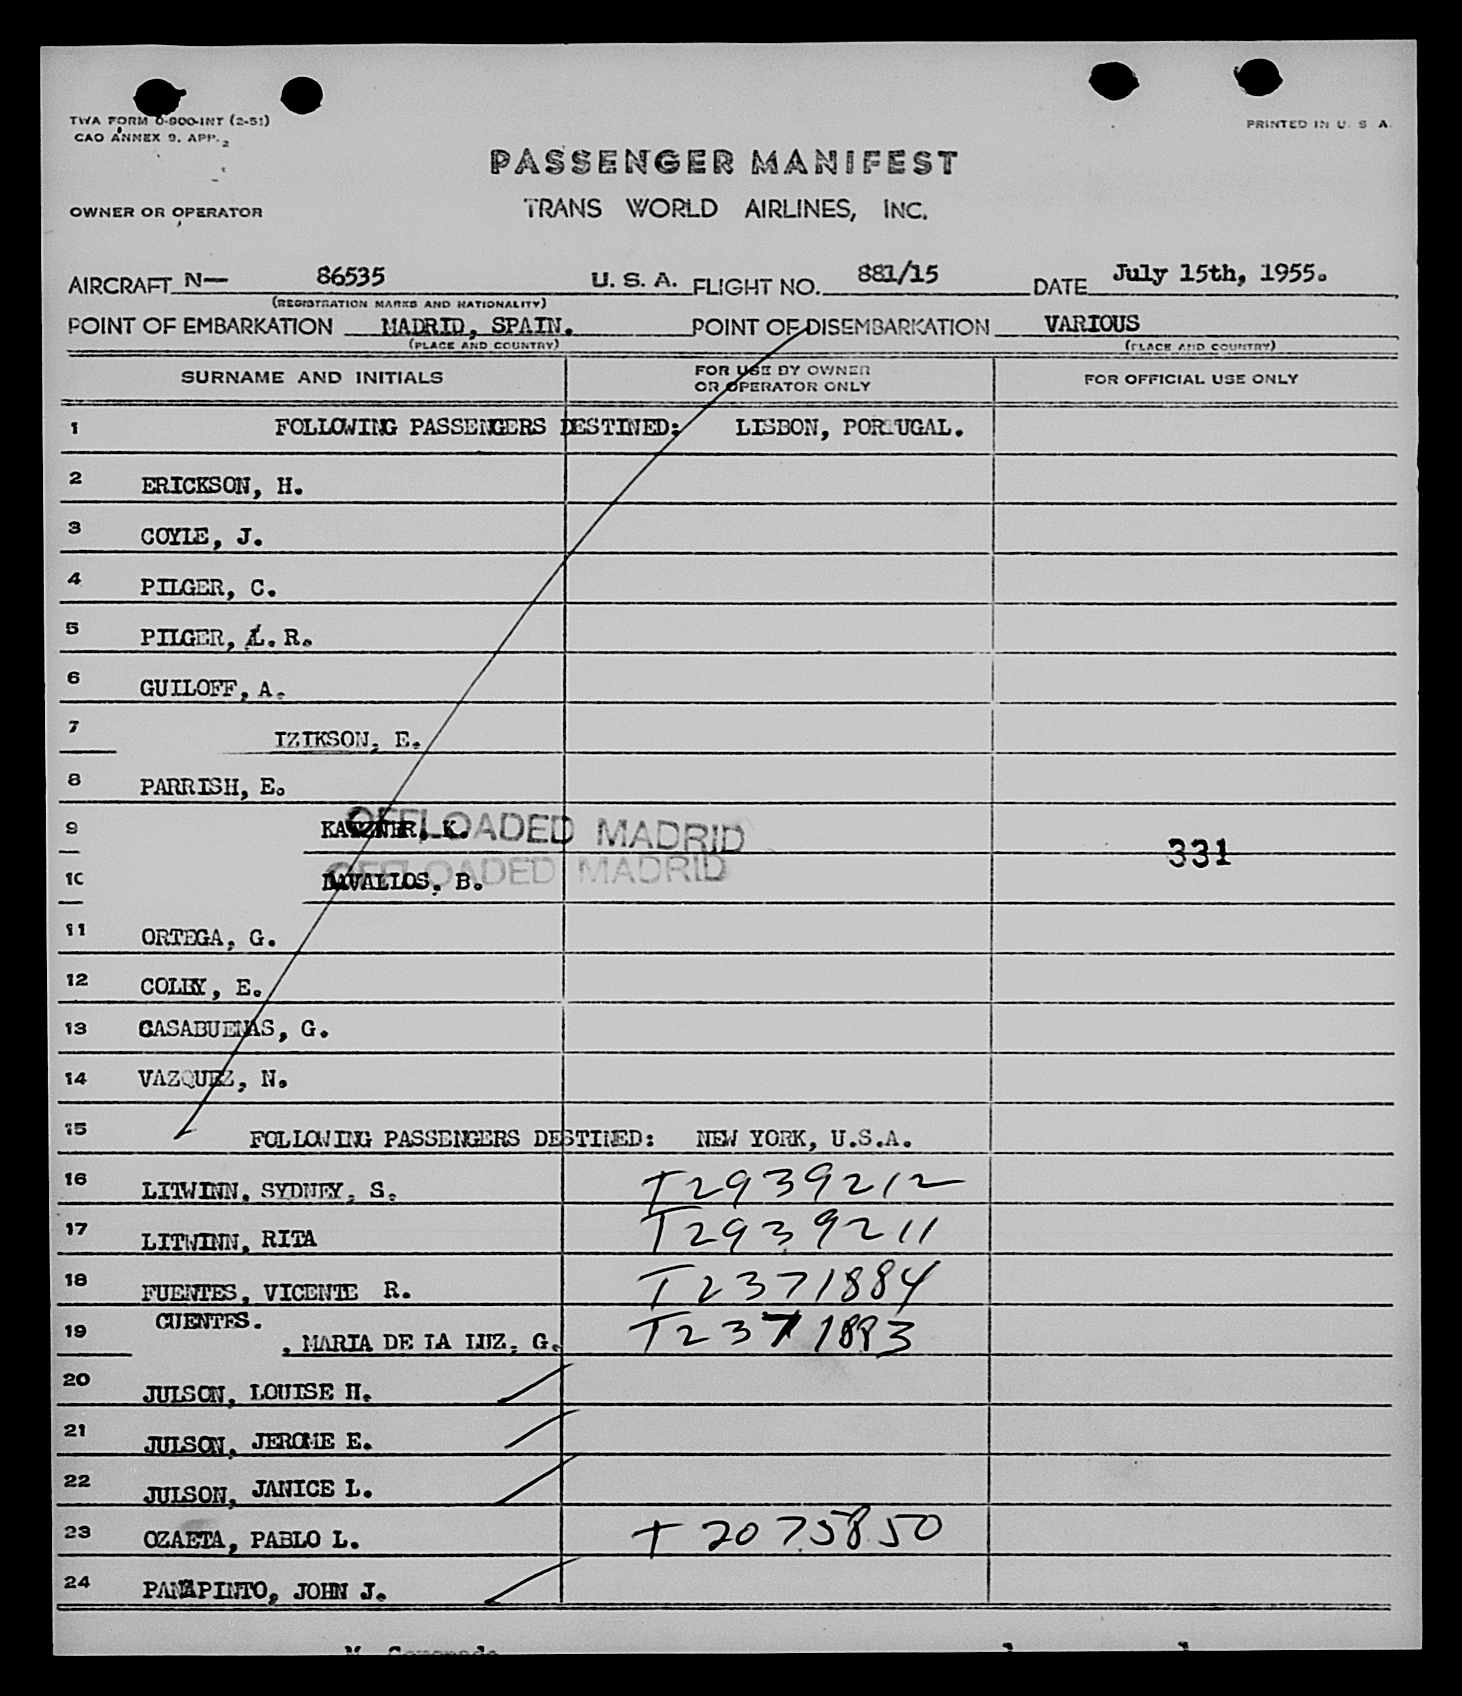 TWA FORM O-900-INT (2-51)
CAO ANNEX 9, APP. 2
PRINTED IN U. S. A.
PASSENGER MANIFEST
OWNER OR OPERATOR TRANS WORLD AIRLINES, INC.
AIRCRAFT N— 86535 U. S. A. FLIGHT NO. 881/15 DATE July 15th, 1955.
(REGISTRATION MARKS AND NATIONALITY)
POINT OF EMBARKATION MADRID, SPAIN. POINT OF DISEMBARKATION VARIOUS
(PLACE AND COUNTRY) (PLACE AND COUNTRY)
SURNAME AND INITIALS FOR USE BY OWNER OR OPERATOR ONLY FOR OFFICIAL USE ONLY
1 FOLLOWING PASSENGERS DESTINED: LISBON, PORTUGAL.
2 ERICKSON, H.
3 COYLE, J.
4 PILGER, C.
5 PILGER, L. R.
6 GUILOFF, A.
7 IZIKSON, E.
8 PARRISH, E.
9 OFFLOADED MADRID
331
10 OFFLOADED MADRID
B.
11 ORTEGA, G.
12 COLLEY, E.
13 CASABUENAS, G.
14 VAZQUEZ, N.
15 FOLLOWING PASSENGERS DESTINED: NEW YORK, U.S.A.
16 LITWINN, SYDNEY, S. T2939212
17 LITWINN, RITA T2939211
18 FUENTES, VICENTE R. T2371884
19 CUENTES. , MARIA DE LA LUZ, G. T2371883
20 JULSON, LOUISE H.
21 JULSON, JEROME E.
22 JULSON, JANICE L.
23 OZAETA, PABLO L. T 2075850
24 PANAPINTO, JOHN J.